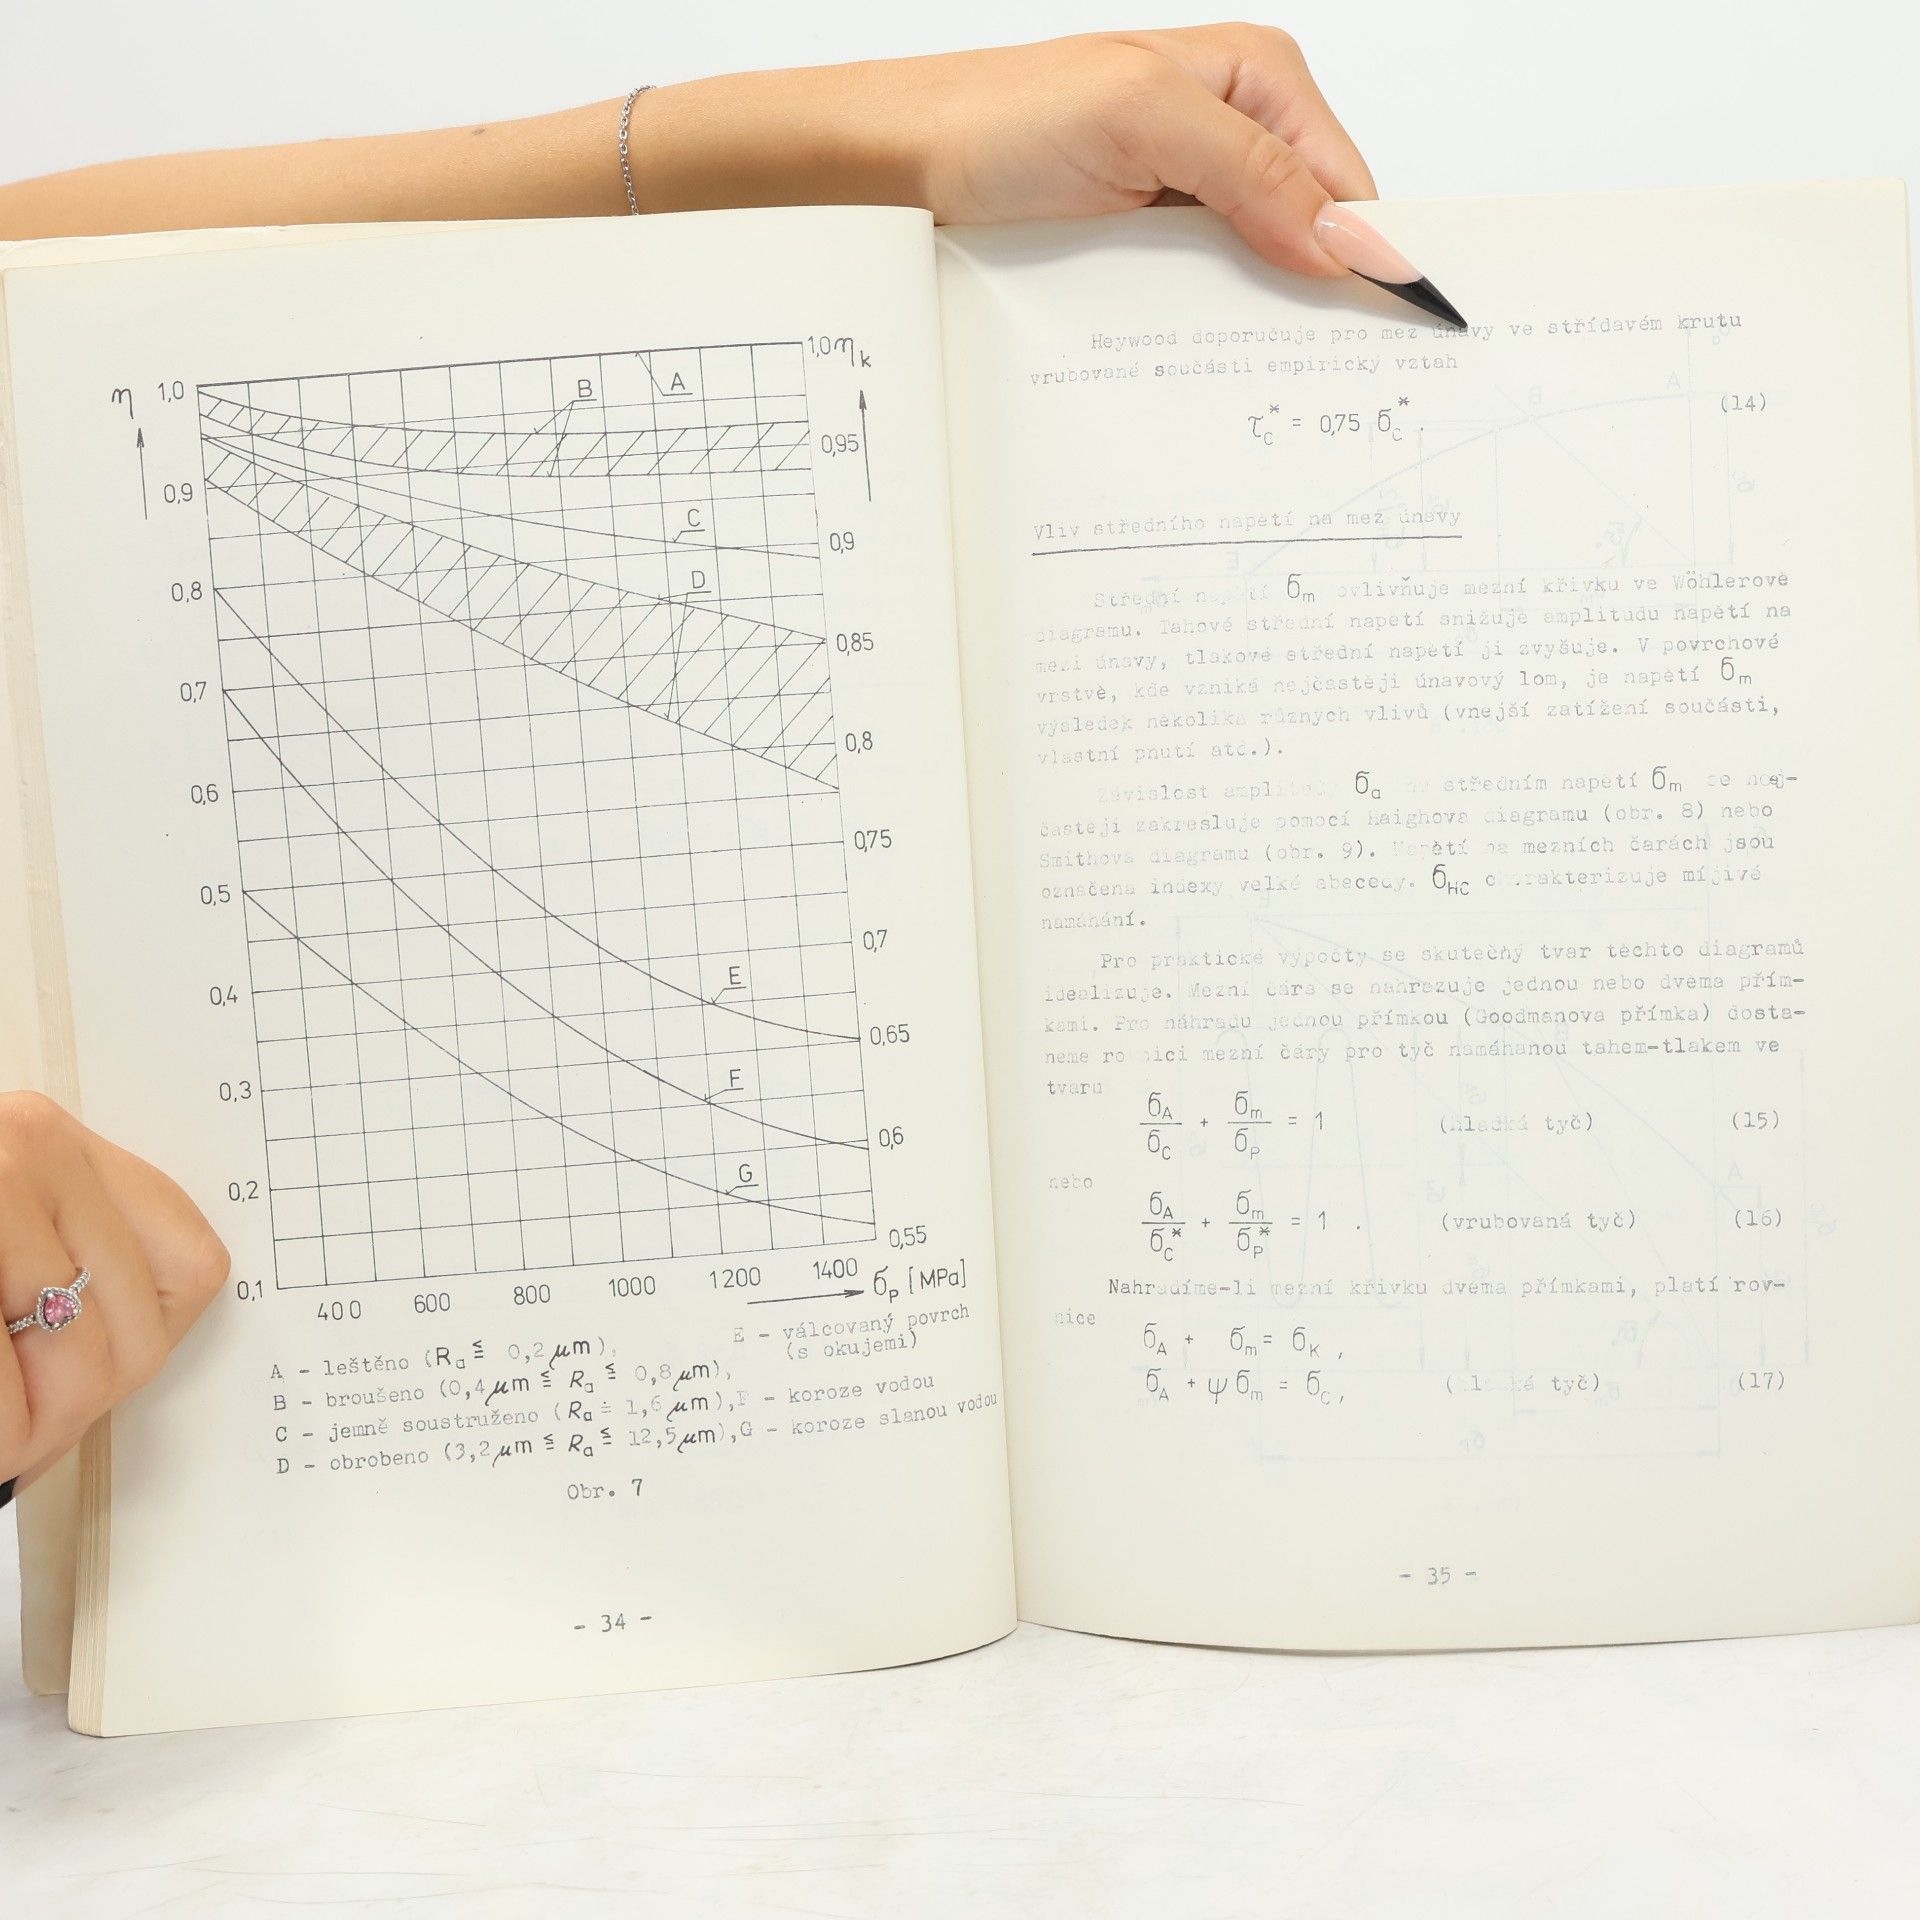 η
1,0
0,9
0,8
0,7
0,6
0,5
0,4
0,3
0,2
0,1
1,0 ηk
0,95
0,9
0,85
0,8
0,75
0,7
0,65
0,6
0,55
A
B
C
D
E
F
G
400 600 800 1000 1200 1400 σP [MPa]
A - leštěno (Ra ≦ 0,2 μm),
B - broušeno (0,4 μm ≦ Ra ≦ 0,8 μm),
C - jemně soustruženo (Ra ≐ 1,6 μm),
D - obrobeno (3,2 μm ≦ Ra ≦ 12,5 μm),
E - válcovaný povrch
(s okujemi)
F - koroze vodou
G - koroze slanou vodou
Obr. 7
- 34 -
Heywood doporučuje pro mez únavy ve střídavém krutu
vrubované součásti empirický vztah
τC* = 0,75 σC* . (14)
Vliv středního napětí na mez únavy
Střední napětí σm ovlivňuje mezní křivku ve Wöhlerově
diagramu. Tahové střední napětí snižuje amplitudu napětí na
mezi únavy, tlakové střední napětí ji zvyšuje. V povrchové
vrstvě, kde vzniká nejčastěji únavový lom, je napětí σm
výsledek několika různých vlivů (vnější zatížení součásti,
vlastní pnutí atd.).
Závislost amplitudy σa na středním napětí σm se nej-
častěji zakresluje pomocí Haighova diagramu (obr. 8) nebo
Smithova diagramu (obr. 9). Napětí na mezních čarách jsou
označena indexy velké abecedy. σHC charakterizuje míjivé
namáhání.
Pro praktické výpočty se skutečný tvar těchto diagramů
idealizuje. Mezní čára se nahrazuje jednou nebo dvěma přím-
kami. Pro náhradu jednou přímkou (Goodmanova přímka) dosta-
neme rovnici mezní čáry pro tyč namáhanou tahem-tlakem ve
tvaru
σA/σC + σm/σP = 1 (hladká tyč) (15)
nebo
σA/σC* + σm/σP* = 1 . (vrubovaná tyč) (16)
Nahradíme-li mezní křivku dvěma přímkami, platí rov-
nice
σA + σm = σK ,
σA + ψ σm = σC , (hladká tyč) (17)
- 35 -